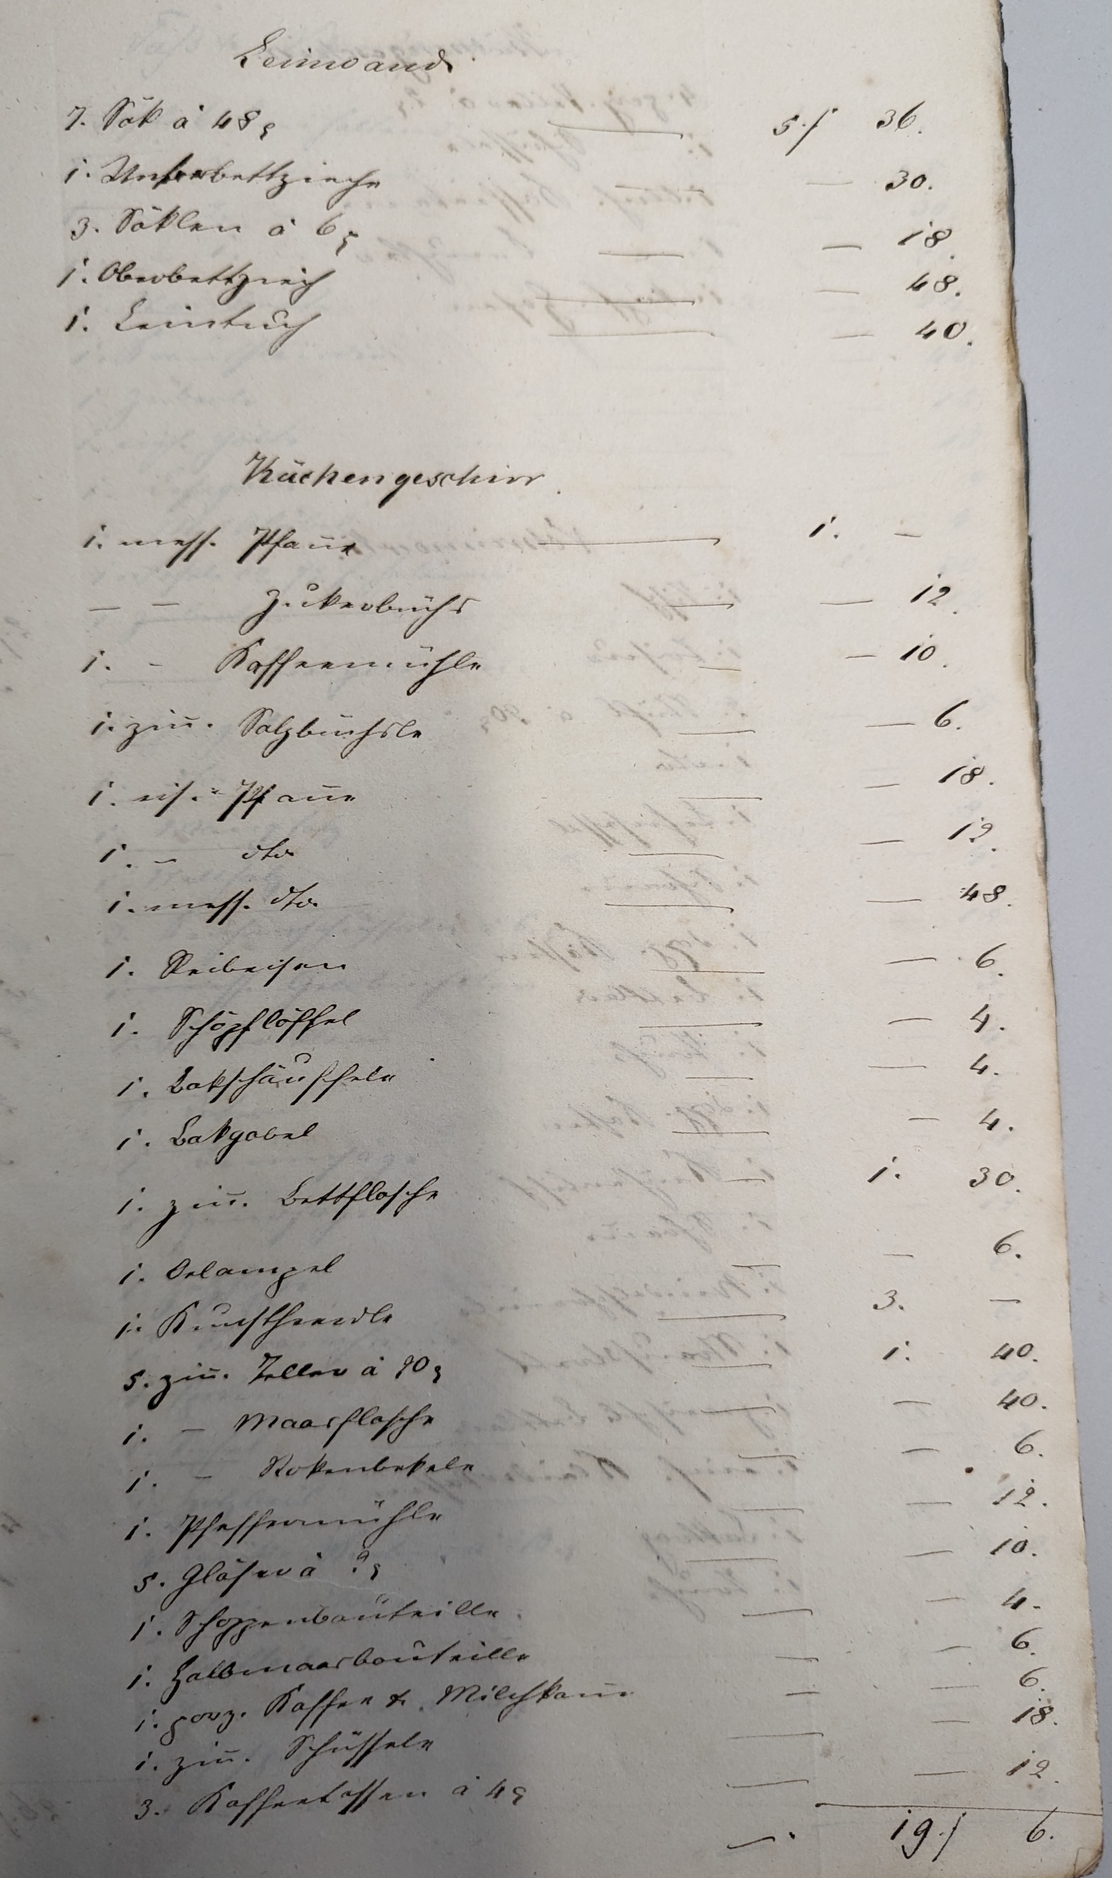 Leinwand.
7. Säk à 48 x 5 f 36.
1. Unterbettzieche — 30.
3. Säklen à 6 x — 18.
1. Oberbettziech — 48.
1. Leintuch — 40.
Küchengeschirr.
1. mess. Pfañe 1. —
— — Zukerbüchs — 12.
1. — Kaffeemühle — 10.
1. ziñ. Salzbüchsle — 6.
1. eis. Pfañe — 18.
1. — dto — 12.
1. mess. dto — 48.
1. Reibeisen — 6.
1. Schöpflöffel — 4.
1. Bakschäuffele — 4.
1. Bakgabel — 4.
1. ziñ. Bettflasche 1. 30.
1. Oelampel — 6.
1. Kunstheerdle 3. —
5. ziñ. Teller à 20 x 1. 40.
1. — Maasflasche — 40.
1. — — 6.
1. Pfeffermühle — 12.
5. Gläser à 2 x — 10.
1. Schoppenbouteille — 4.
1. Halbmaasbouteille — 6.
1. porz. Kaffee & Milchkañe — 6.
1. ziñ. Schüssele — 18.
3. Kaffeetassen à 4 x — 12.
19 f 6.